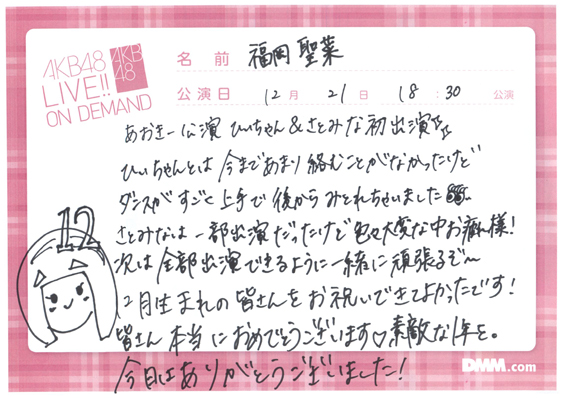 AKB48
LIVE!!
ON DEMAND
AKB
48
名前 福岡 聖菜
公演日 12月 21日 18:30 公演
あおきー公演 ひぃちゃん&さとみな初出演
ひぃちゃんとは 今まであまり絡むことがなかったけど
ダンスがすごく上手で後からみとれちゃいました
さとみなは一部出演だったけど色々大変な中お疲れ様!
次は全部出演できるように一緒に頑張るぞ〜
12月生まれの皆さんをお祝いできてよかったです!
皆さん本当におめでとうございます♡素敵な1年を。
今日はありがとうございました!
12
DMM.com